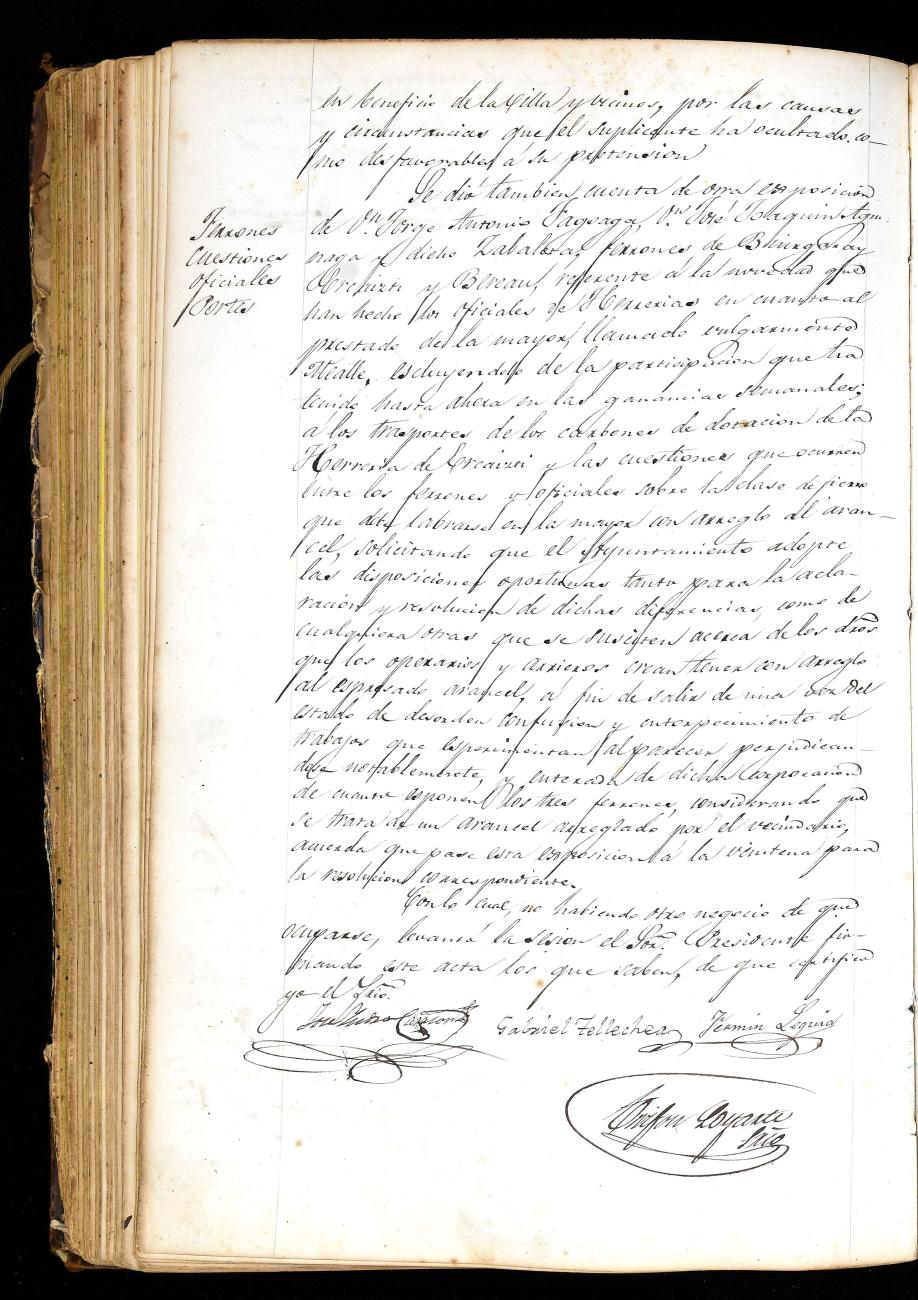 en beneficio de la Villa y vecinos, por las causas
y circunstancias que el suplicante ha ocultado co-
mo desfavorables á su pretension
Se dió tambien cuenta de otra esposicion
Ferrones
cuestiones
oficiales
Portes
de Dn. Jorge Antonio Fagoaga, Dn. José Joaquin Agui-
naga y dicho Zabaleta, ferrones de
y Bereau, referente á la novedad que
han hecho los oficiales de Herrerias en cuanto al
prestado de la mayor, llamado vulgarmente
escluyendole de la participacion que ha
tenido hasta ahora en las ganancias semanales;
á los trasportes de los carbones de dotacion de la
Herreria de y las cuestiones que ocurren
entre los ferrones y oficiales sobre la clase de fierro
que debe labrarse en la mayor con arreglo al aran-
cel, solicitando que el Ayuntamiento adopte
las disposiciones oportunas tanto para la acla-
racion y resolucion de dichas diferencias, como de
cualquiera otras que se susciten acerca de los dros
que los operarios y arrieros crean tener con arreglo
al espresado arancel, á fin de salir de una vez del
estado de desorden confusion y entorpecimiento de
trabajos que esperimentan al parecer perjudican-
dose notablemente, y enterada de dicha Corporacion
de cuanto esponen los tres ferrones, considerando que
se trata de un arancel arreglado por el vecindario,
acuerda que pase esta esposicion á la veintena para
la resolucion correspondiente.
Con lo cual, no habiendo otro negocio de que
ocuparse, levantó la sesion el Sor. Presidente fir-
mando este acta los que saben, de que certifico
yo el Srio.
Gabriel Tellechea Fermin Leguia
Loyarte
Srio